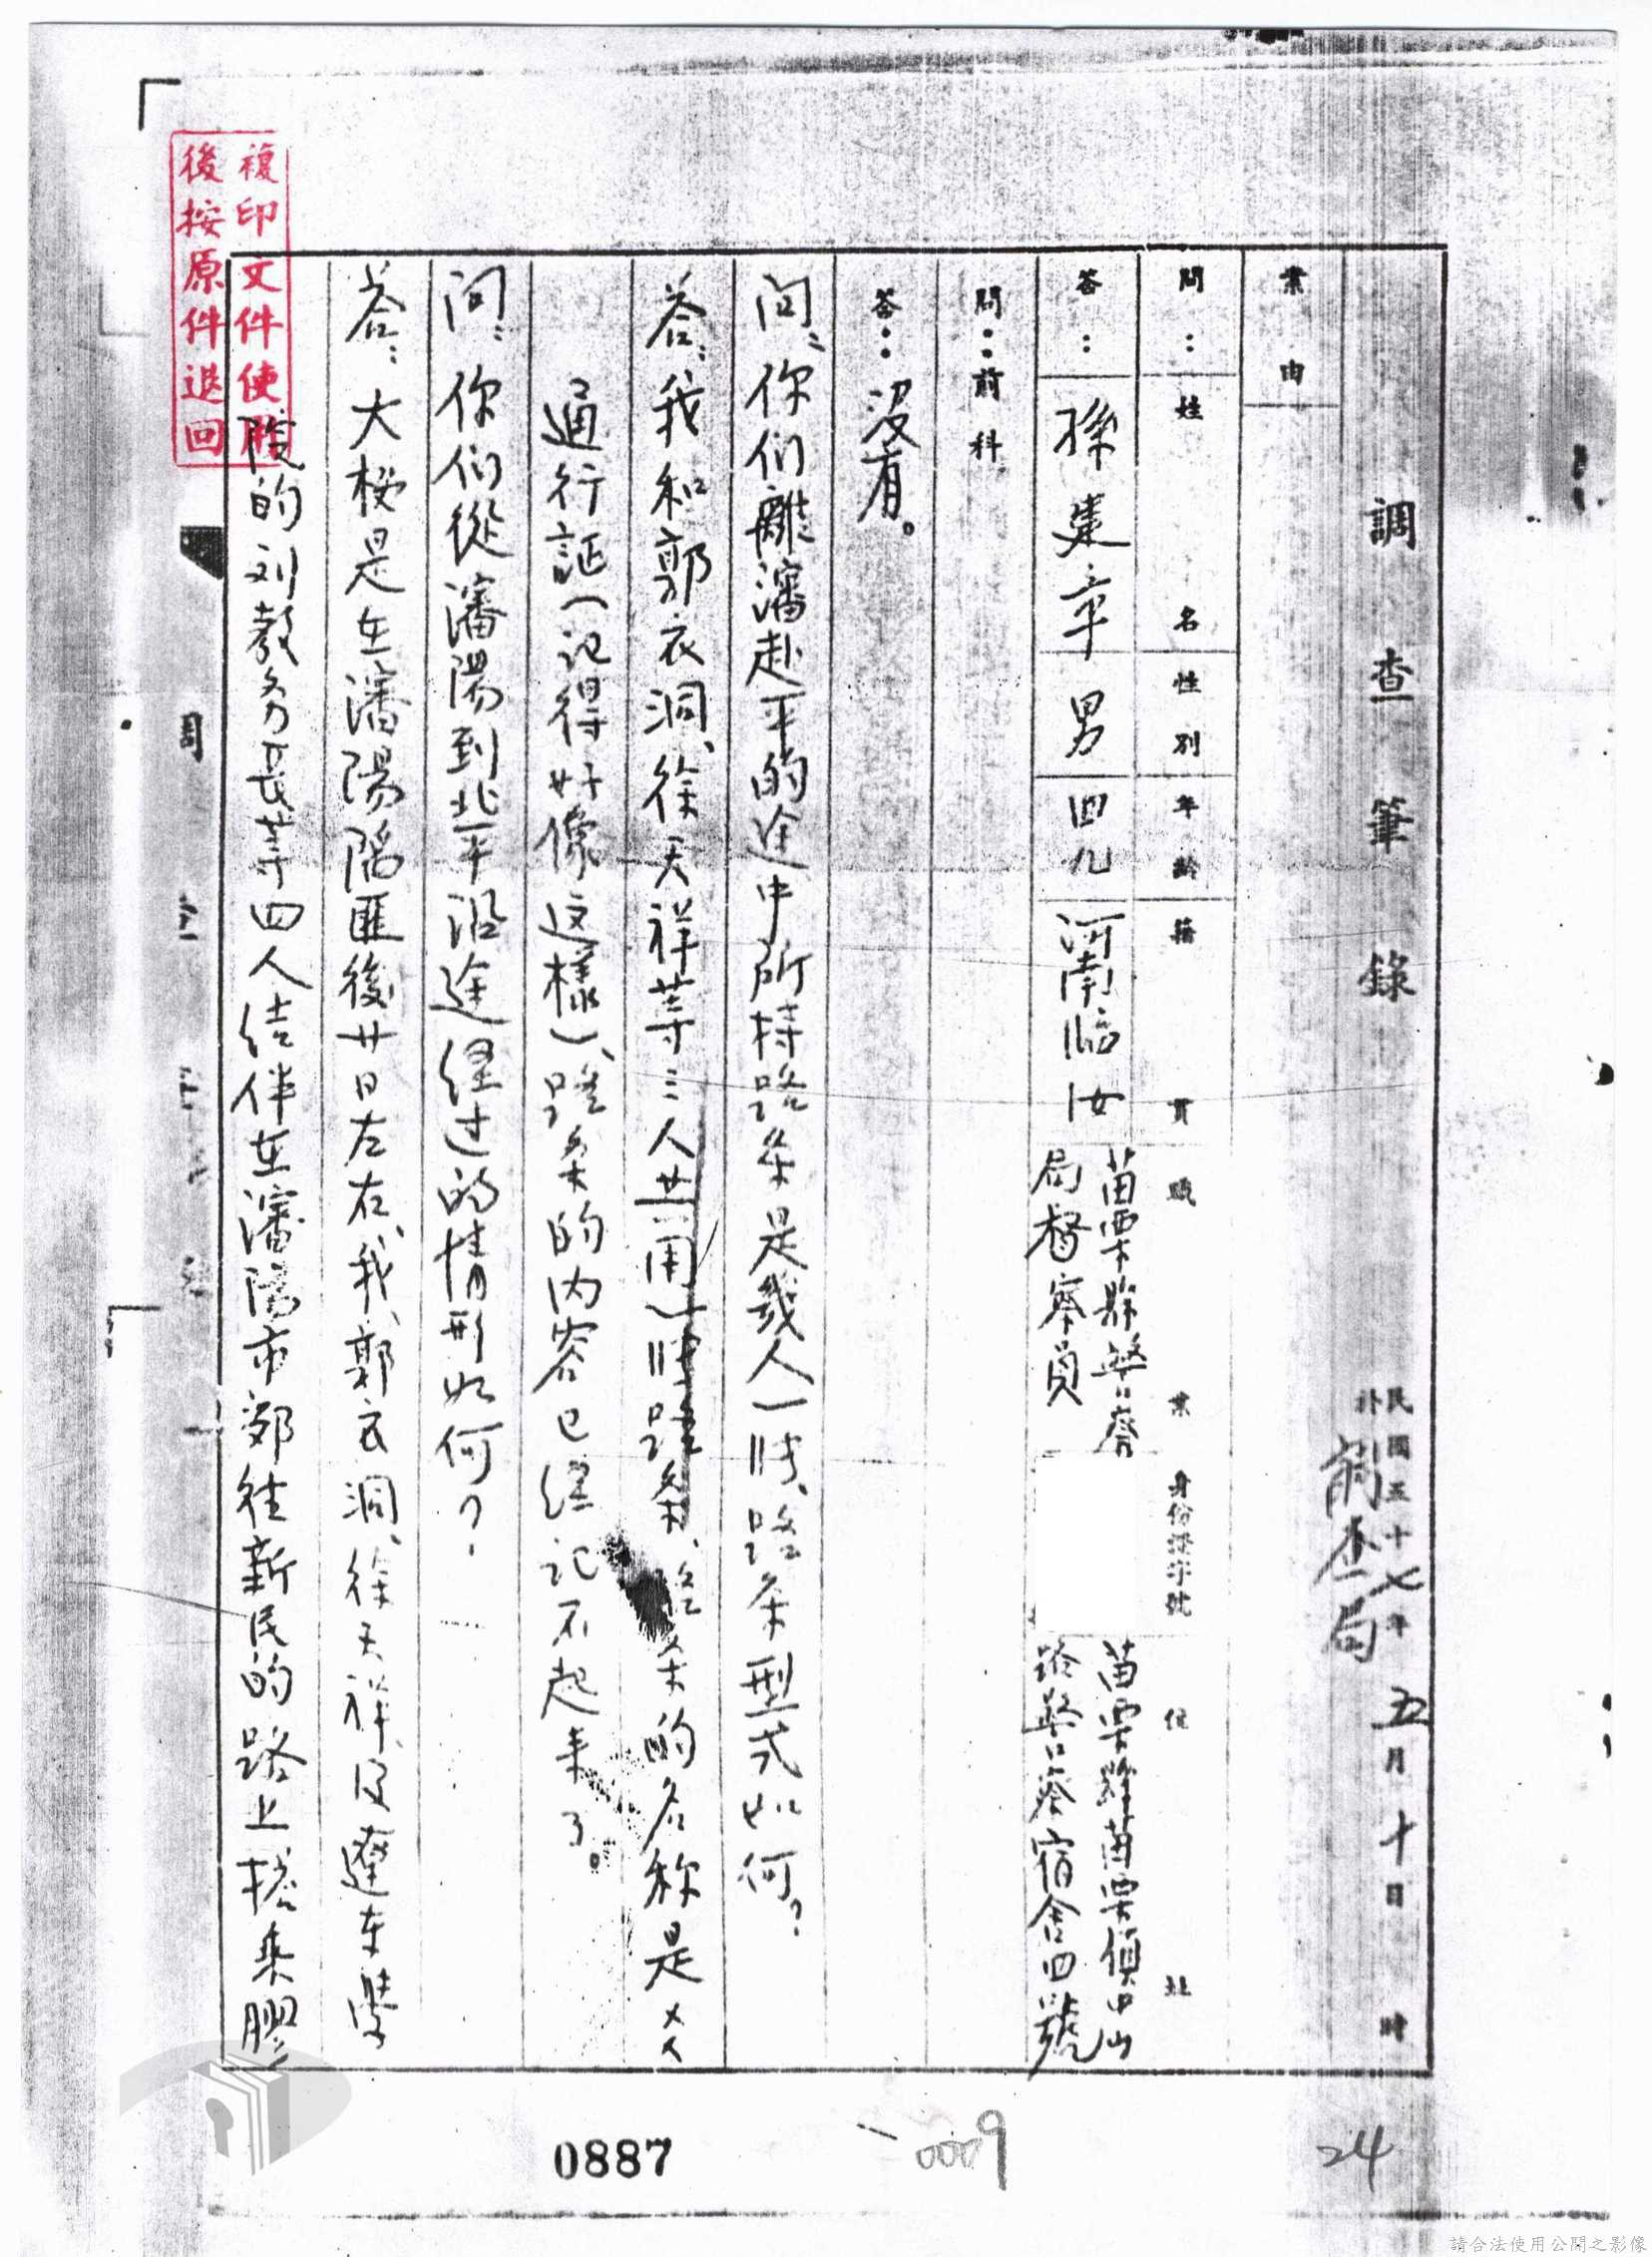 調查筆錄
民國五十七年五月十日 時
於調查局
案由
問：姓名 性別 年齡 籍貫 職業 身份證字號 住址
答：孫建章 男 四九 河南臨汝 苗栗縣警察局督察員 苗栗縣苗栗鎮中山路警察宿舍四號
問：前科
答：沒有。
問：你们離瀋赴平的途中所持路条是幾人一張、路条型式如何？
答：我和郭衣洞、徐天祥等三人共用一張路条、路条的名称是××
通行証（记得好像这樣）、路条的内容已经记不起来了。
问：你们從瀋陽到北平沿途经过的情形如何？
答：大概是在瀋陽陷匪後廿日左右、我、郭衣洞、徐天祥、及遼东學
院的刘教务長等四人结伴在瀋陽市郊往新民的路上搭乘膠
複印文件使用
後按原件退回
0887
0009
24
請合法使用公開之影像